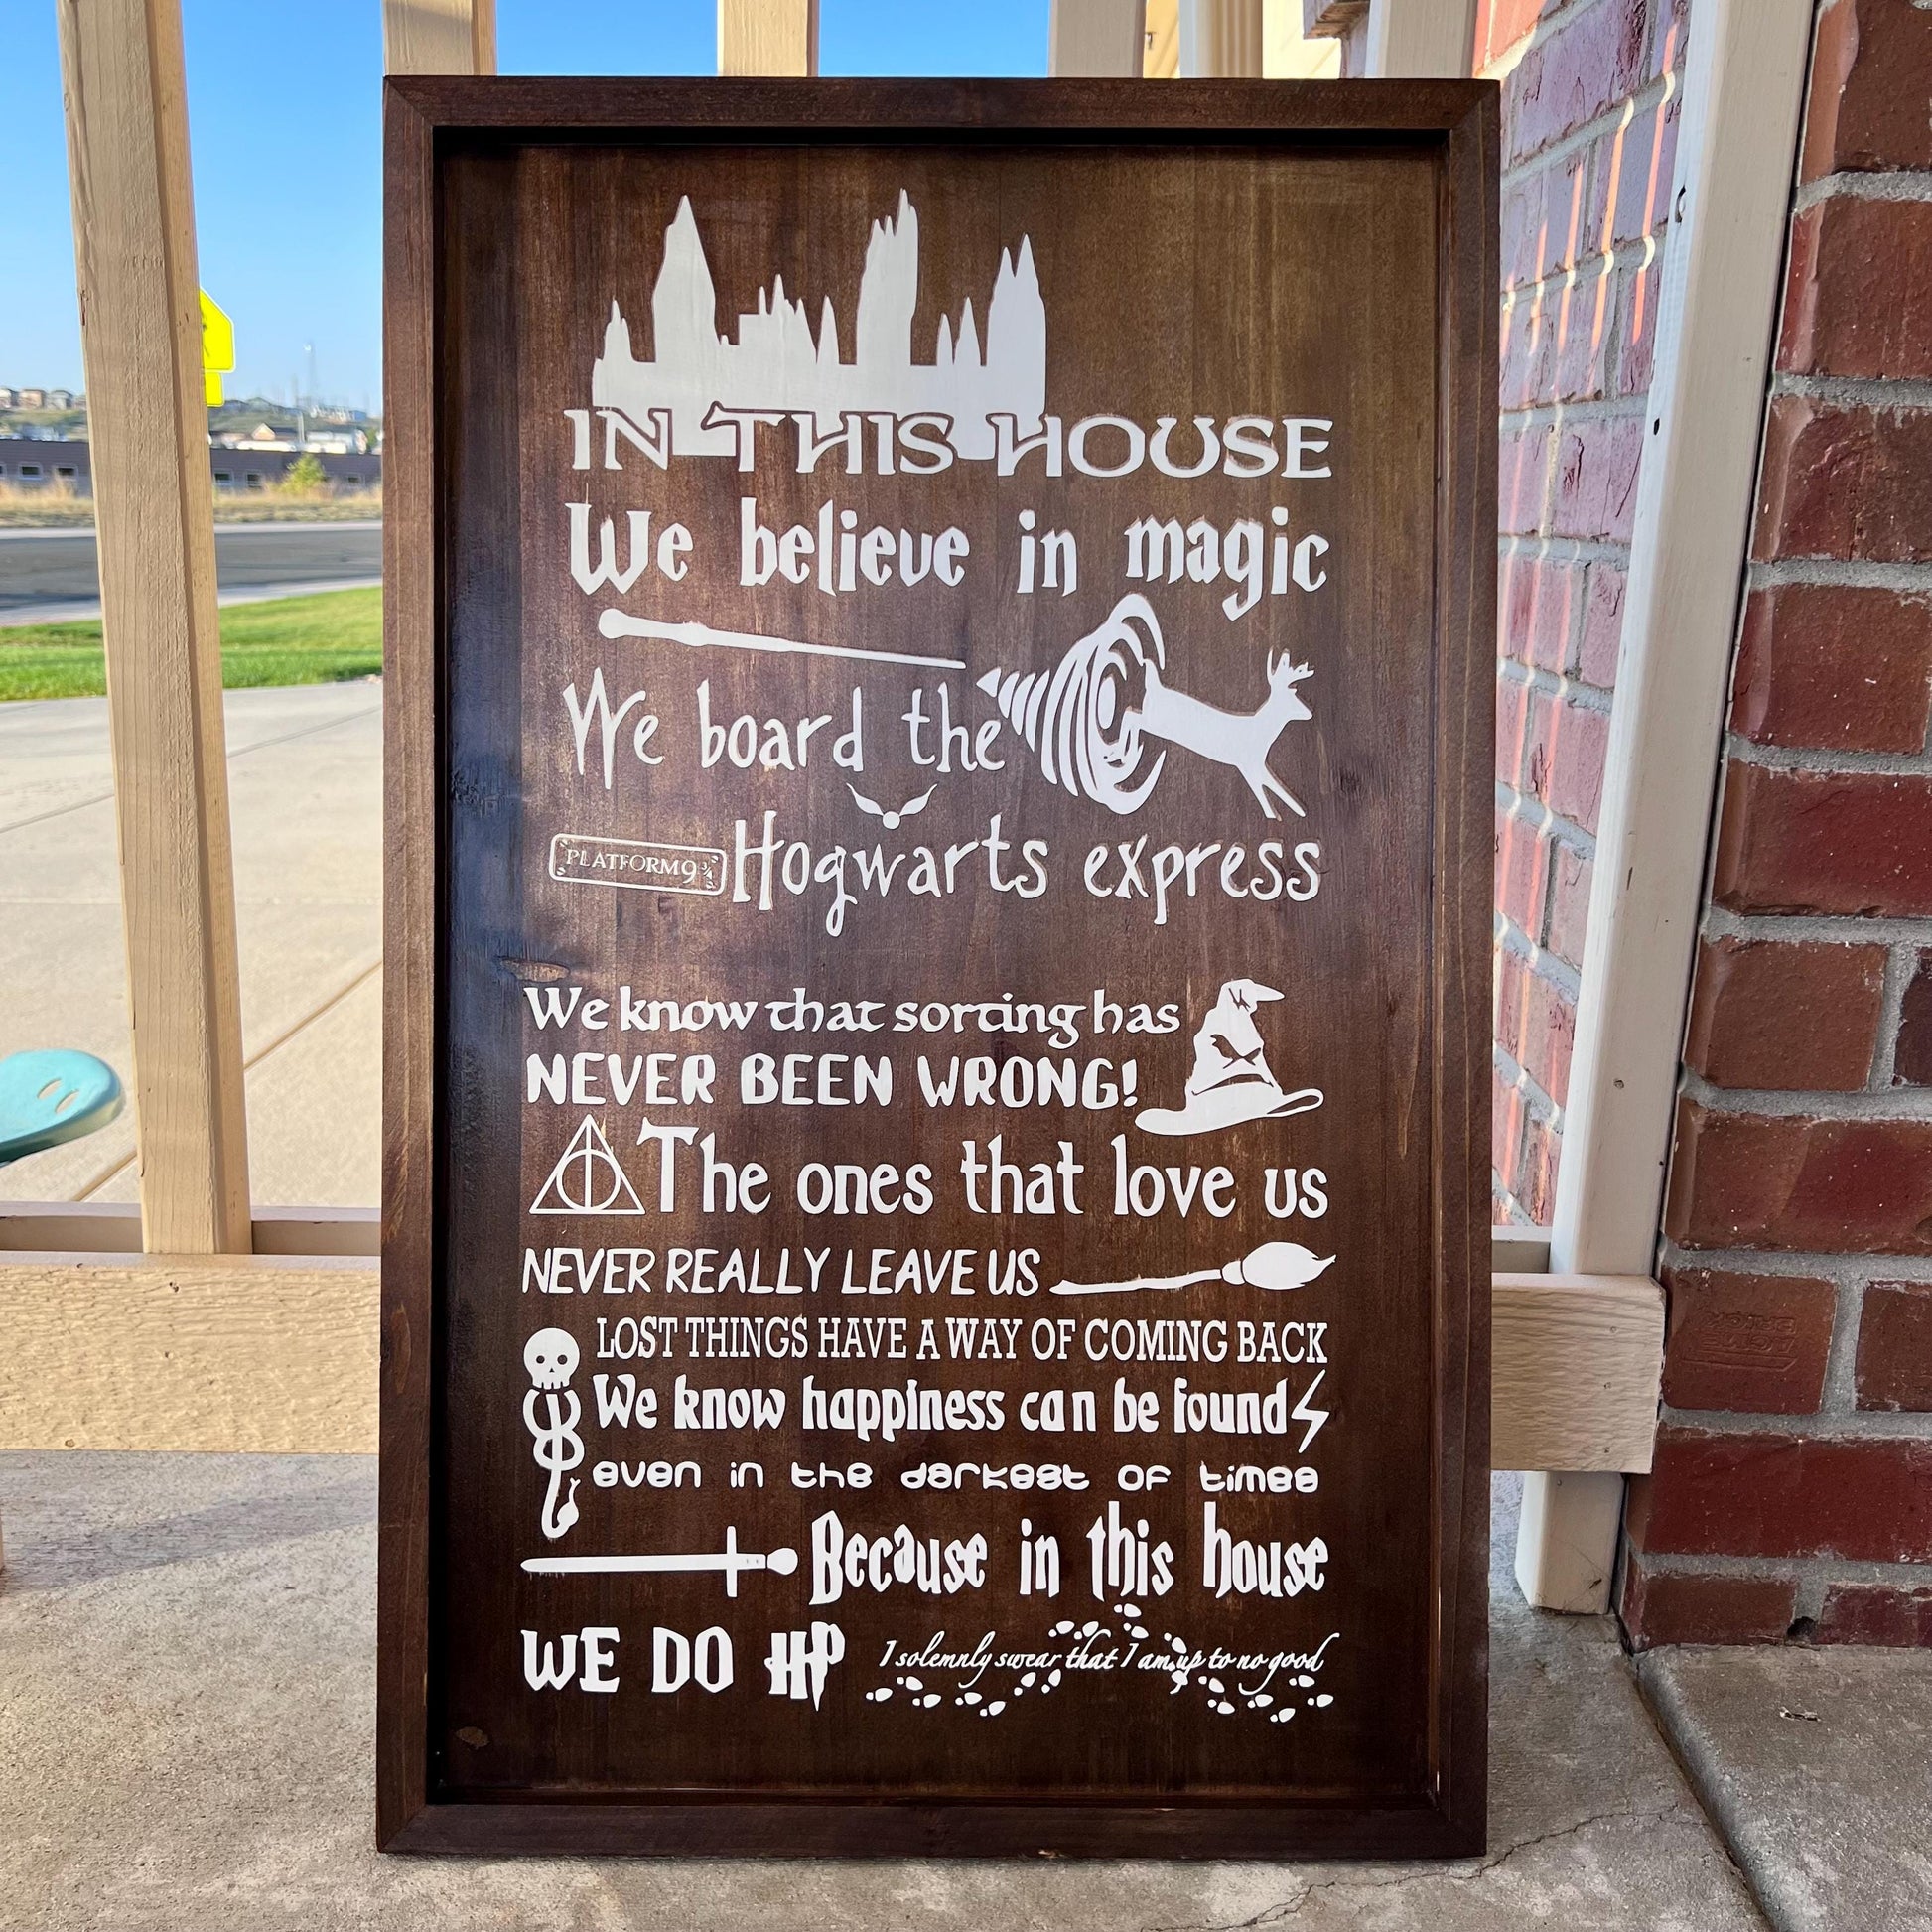 IN THIS HOUSE
We believe in magic
We board the
PLATFORM 9 3/4
Hogwarts express
We know that sorting has
NEVER BEEN WRONG!
The ones that love us
NEVER REALLY LEAVE US
LOST THINGS HAVE A WAY OF COMING BACK
We know happiness can be found
even in the darkest of times
Because in this house
WE DO HP
I solemnly swear that I am up to no good